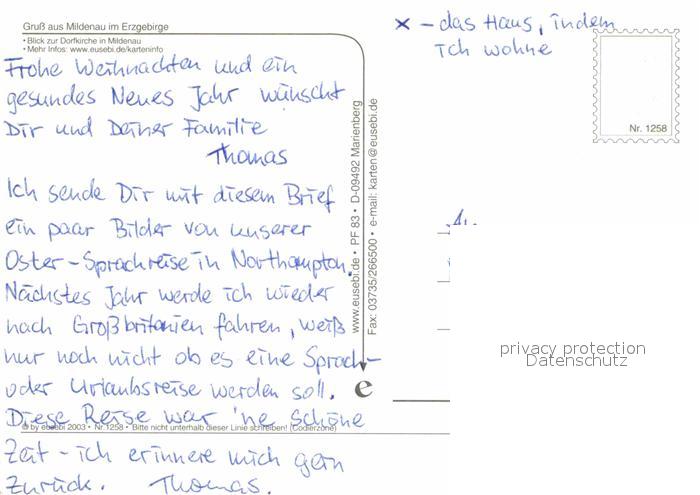 Gruß aus Mildenau im Erzgebirge
• Blick zur Dorfkirche in Mildenau
• Mehr Infos: www.eusebi.de/karteninfo
x - das Haus, indem
ich wohne
Nr. 1258
Frohe Weihnachten und ein
gesundes Neues Jahr wünscht
Dir und Deiner Familie
Thomas
Ich sende Dir mit diesem Brief
ein paar Bilder von unserer
Oster-Sprachreise in Northampton.
Nächstes Jahr werde ich wieder
nach Großbritanien fahren, weiß
nur noch nicht ob es eine Sprach-
oder Urlaubsreise werden soll.
Diese Reise war 'ne schöne
© by eusebi 2003 • Nr. 1258 • Bitte nicht unterhalb dieser Linie schreiben! (Codierzone)
Zeit - ich erinnere mich gern
zurück. Thomas.
www.eusebi.de • PF 83 • D-09492 Marienberg
Fax: 03735/266500 • e-mail: karten@eusebi.de
e
privacy protection
Datenschutz